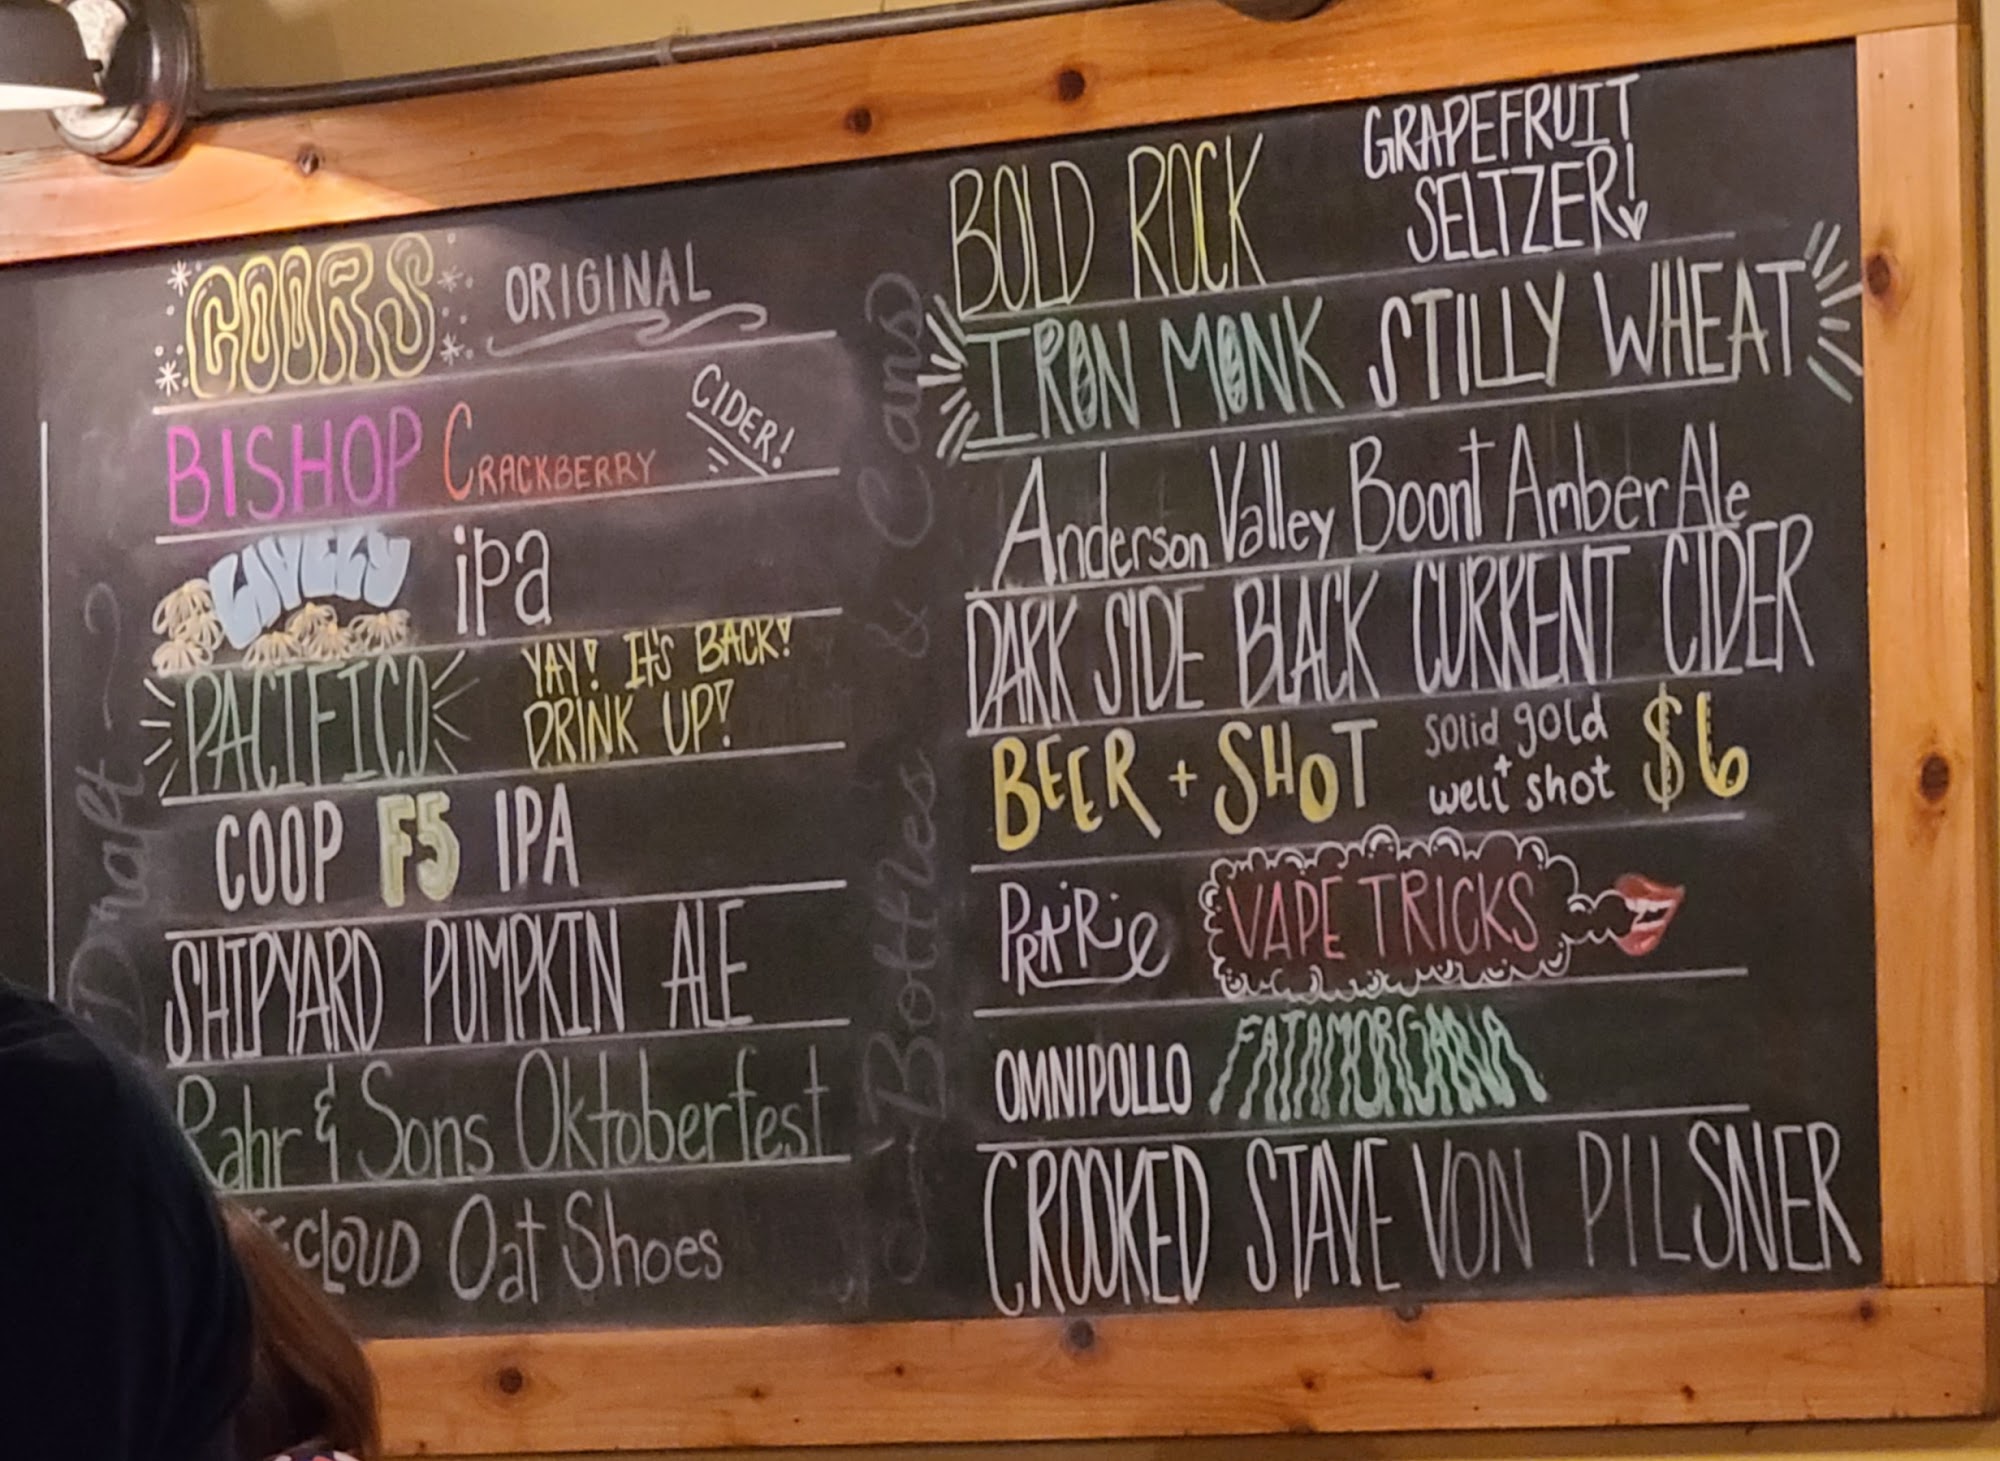 Draft
COORS ORIGINAL
BISHOP CRACKBERRY CIDER!
LIVELY ipa
PACIFICO YAY! IT'S BACK!
DRINK UP!
COOP F5 IPA
SHIPYARD PUMPKIN ALE
Rahr & Sons Oktoberfest
CLOUD Oat Shoes
Bottles & Cans
BOLD ROCK GRAPEFRUIT
SELTZER!
IRON MONK STILLY WHEAT
Anderson Valley Boont Amber Ale
DARK SIDE BLACK CURRENT CIDER
BEER + SHOT solid gold
+ well shot $6
PRAIRIE VAPE TRICKS
OMNIPOLLO FATAMORGANA
CROOKED STAVE VON PILSNER